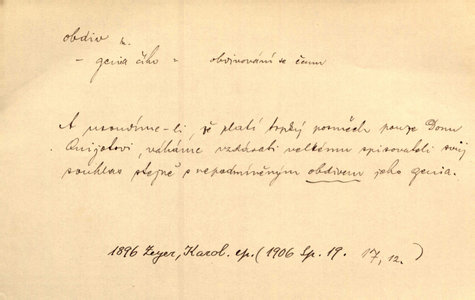 obdiv m.
- genia čího = obdivování se čemu
A usoudíme-li, že platí trpký posměch pouze Donu
Quijotovi, váháme vzdávati velkému spisovateli svůj
souhlas stejně s nepodmíněným obdivem jeho genia.
1896 Zeyer, Karol. ep. (1906 Sp. 19. 17, 12.)